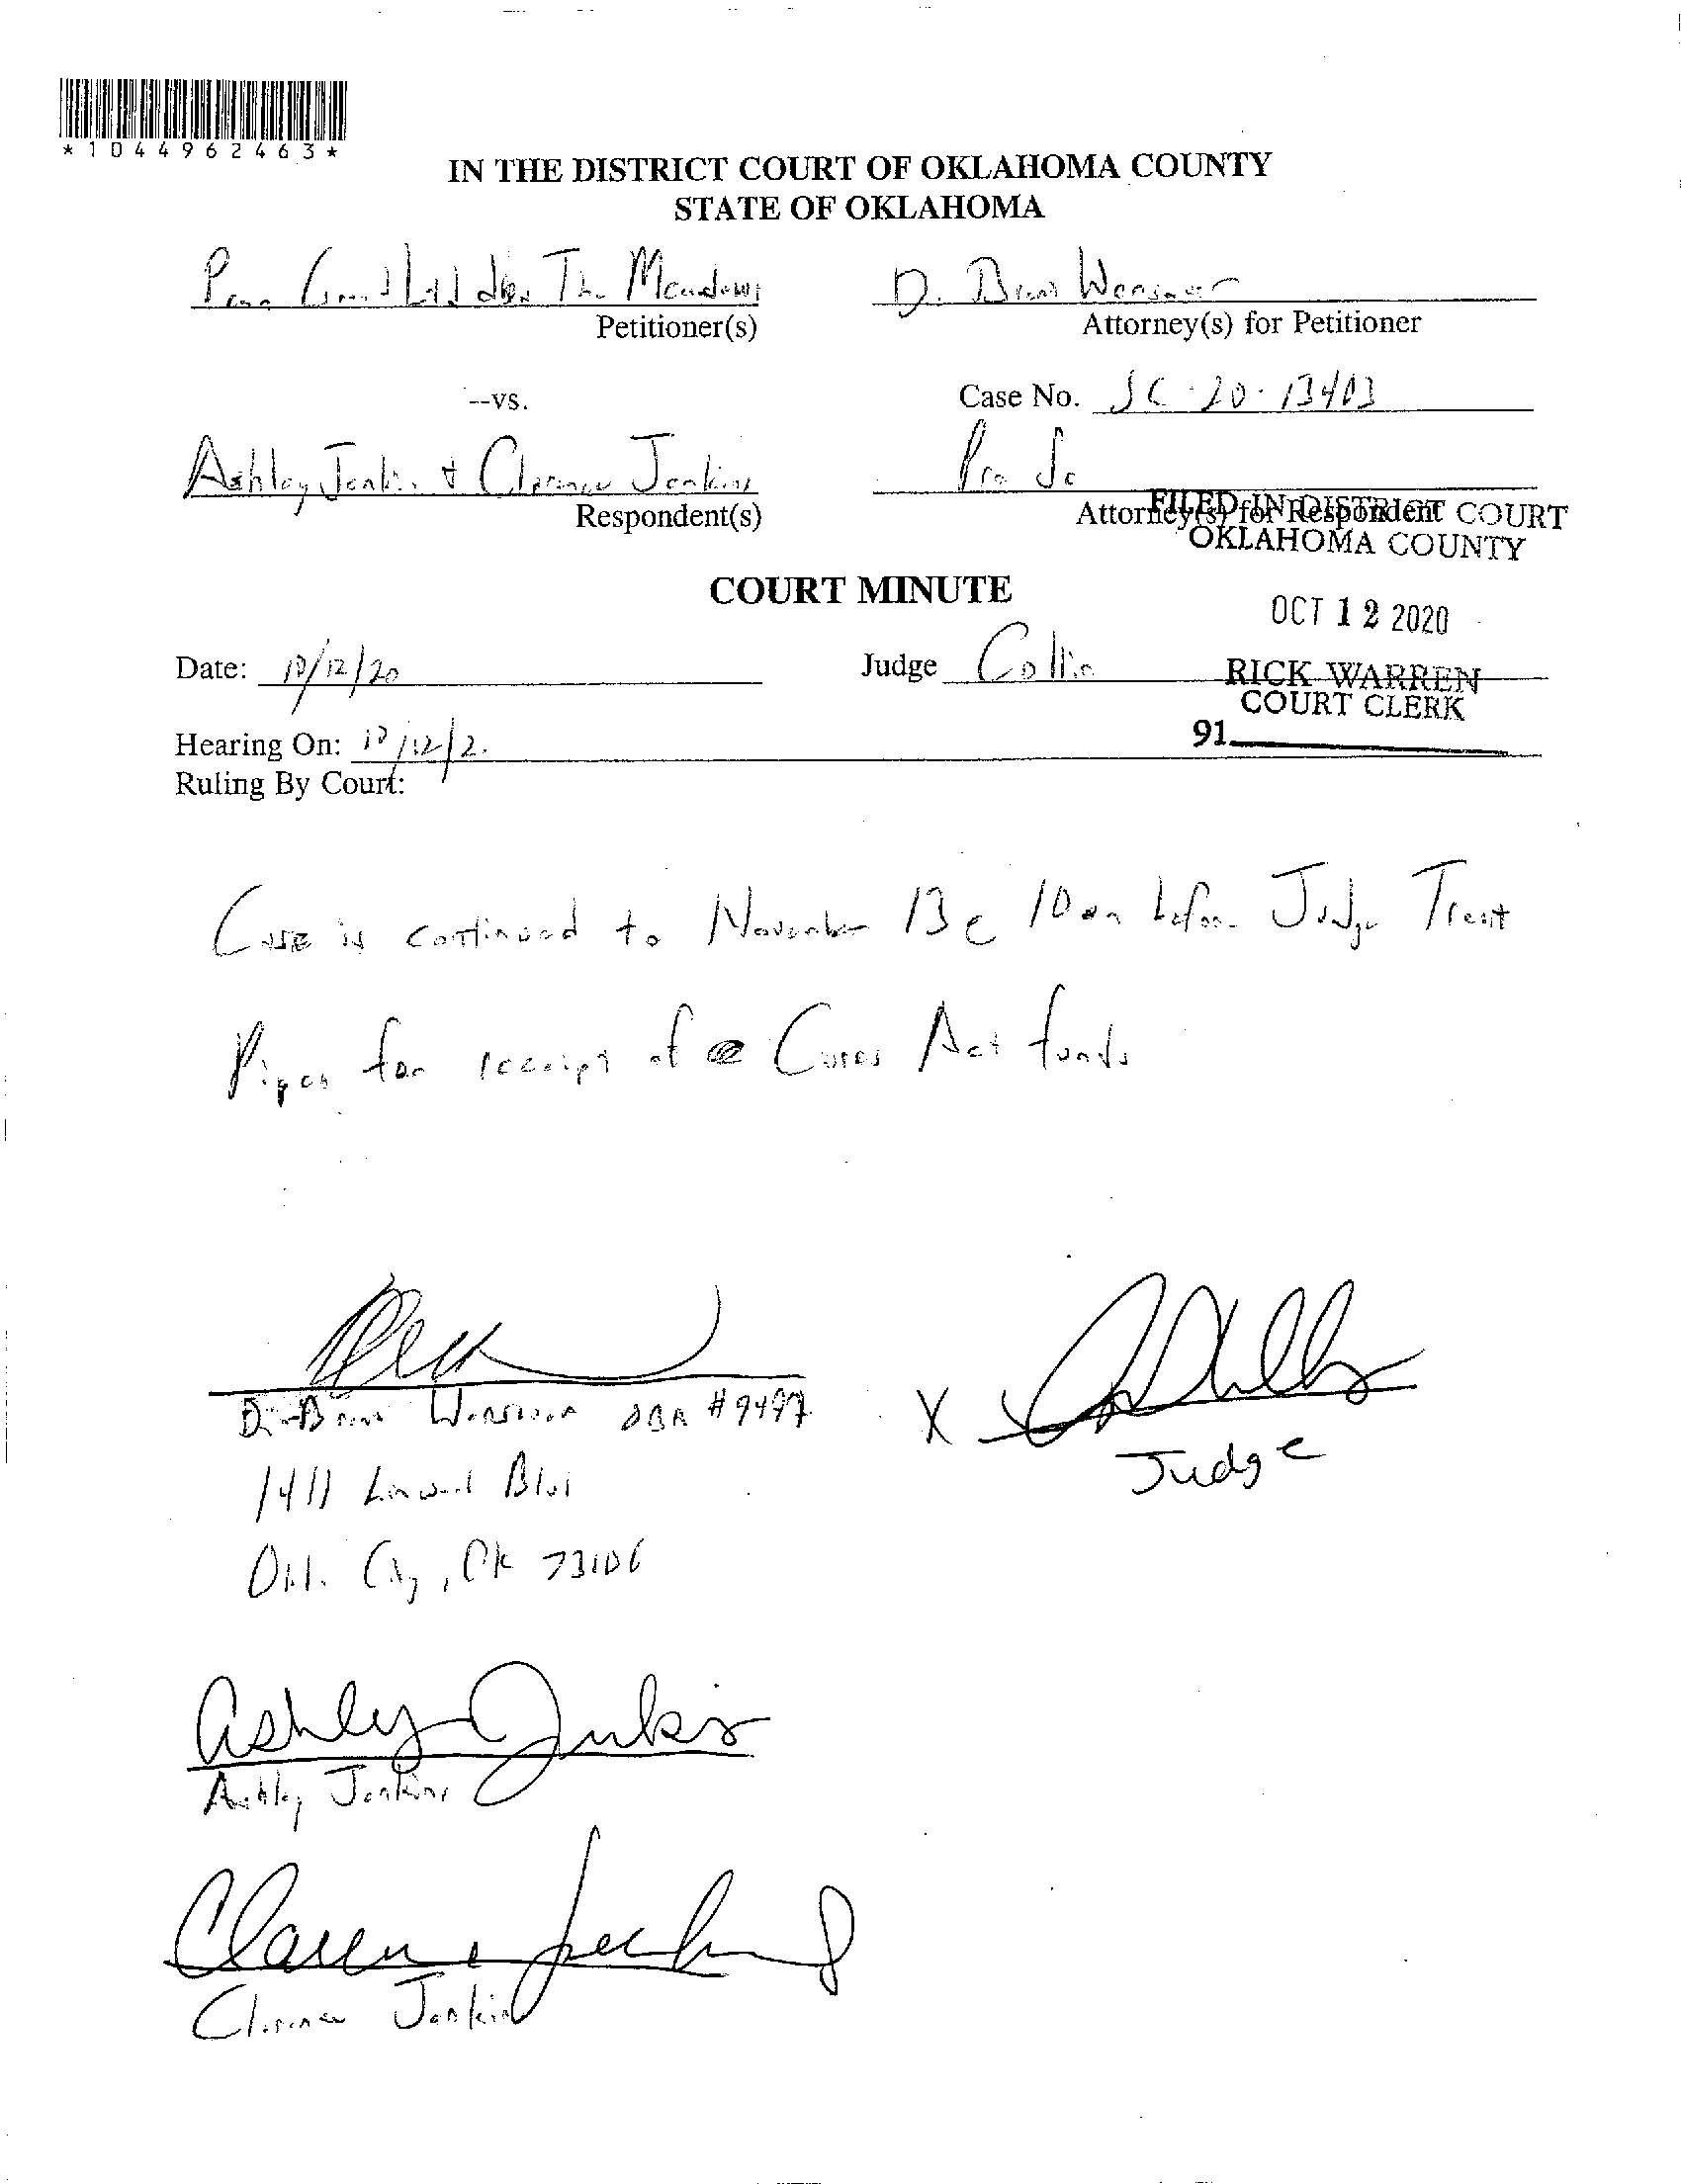 *1044962463*
IN THE DISTRICT COURT OF OKLAHOMA COUNTY
STATE OF OKLAHOMA
Penn Grand Ltd dba The Meadows
D. Brent
Petitioner(s)
Attorney(s) for Petitioner
--vs.
Case No. SC-20-13403
Ashley Jenkins & Clarence Jenkins
Pro Se
Respondent(s)
Attorney(s) for Respondent
FILED IN DISTRICT COURT
OKLAHOMA COUNTY
COURT MINUTE
OCT 12 2020
Date: 10/12/20
Judge Collin
RICK WARREN
COURT CLERK
Hearing On: 10/12/2.
91
Ruling By Court:
Case is continued to November 13 @ 10 am before Judge Trent
Pipes for receipt of Cares Act funds
D. Brent OBA #9497
1411 Linwood Blvd
Okl. City, Ok 73106
Judge
Ashley Jenkins
Ashley Jenkins
Clarence Jenkins
Clarence Jenkins